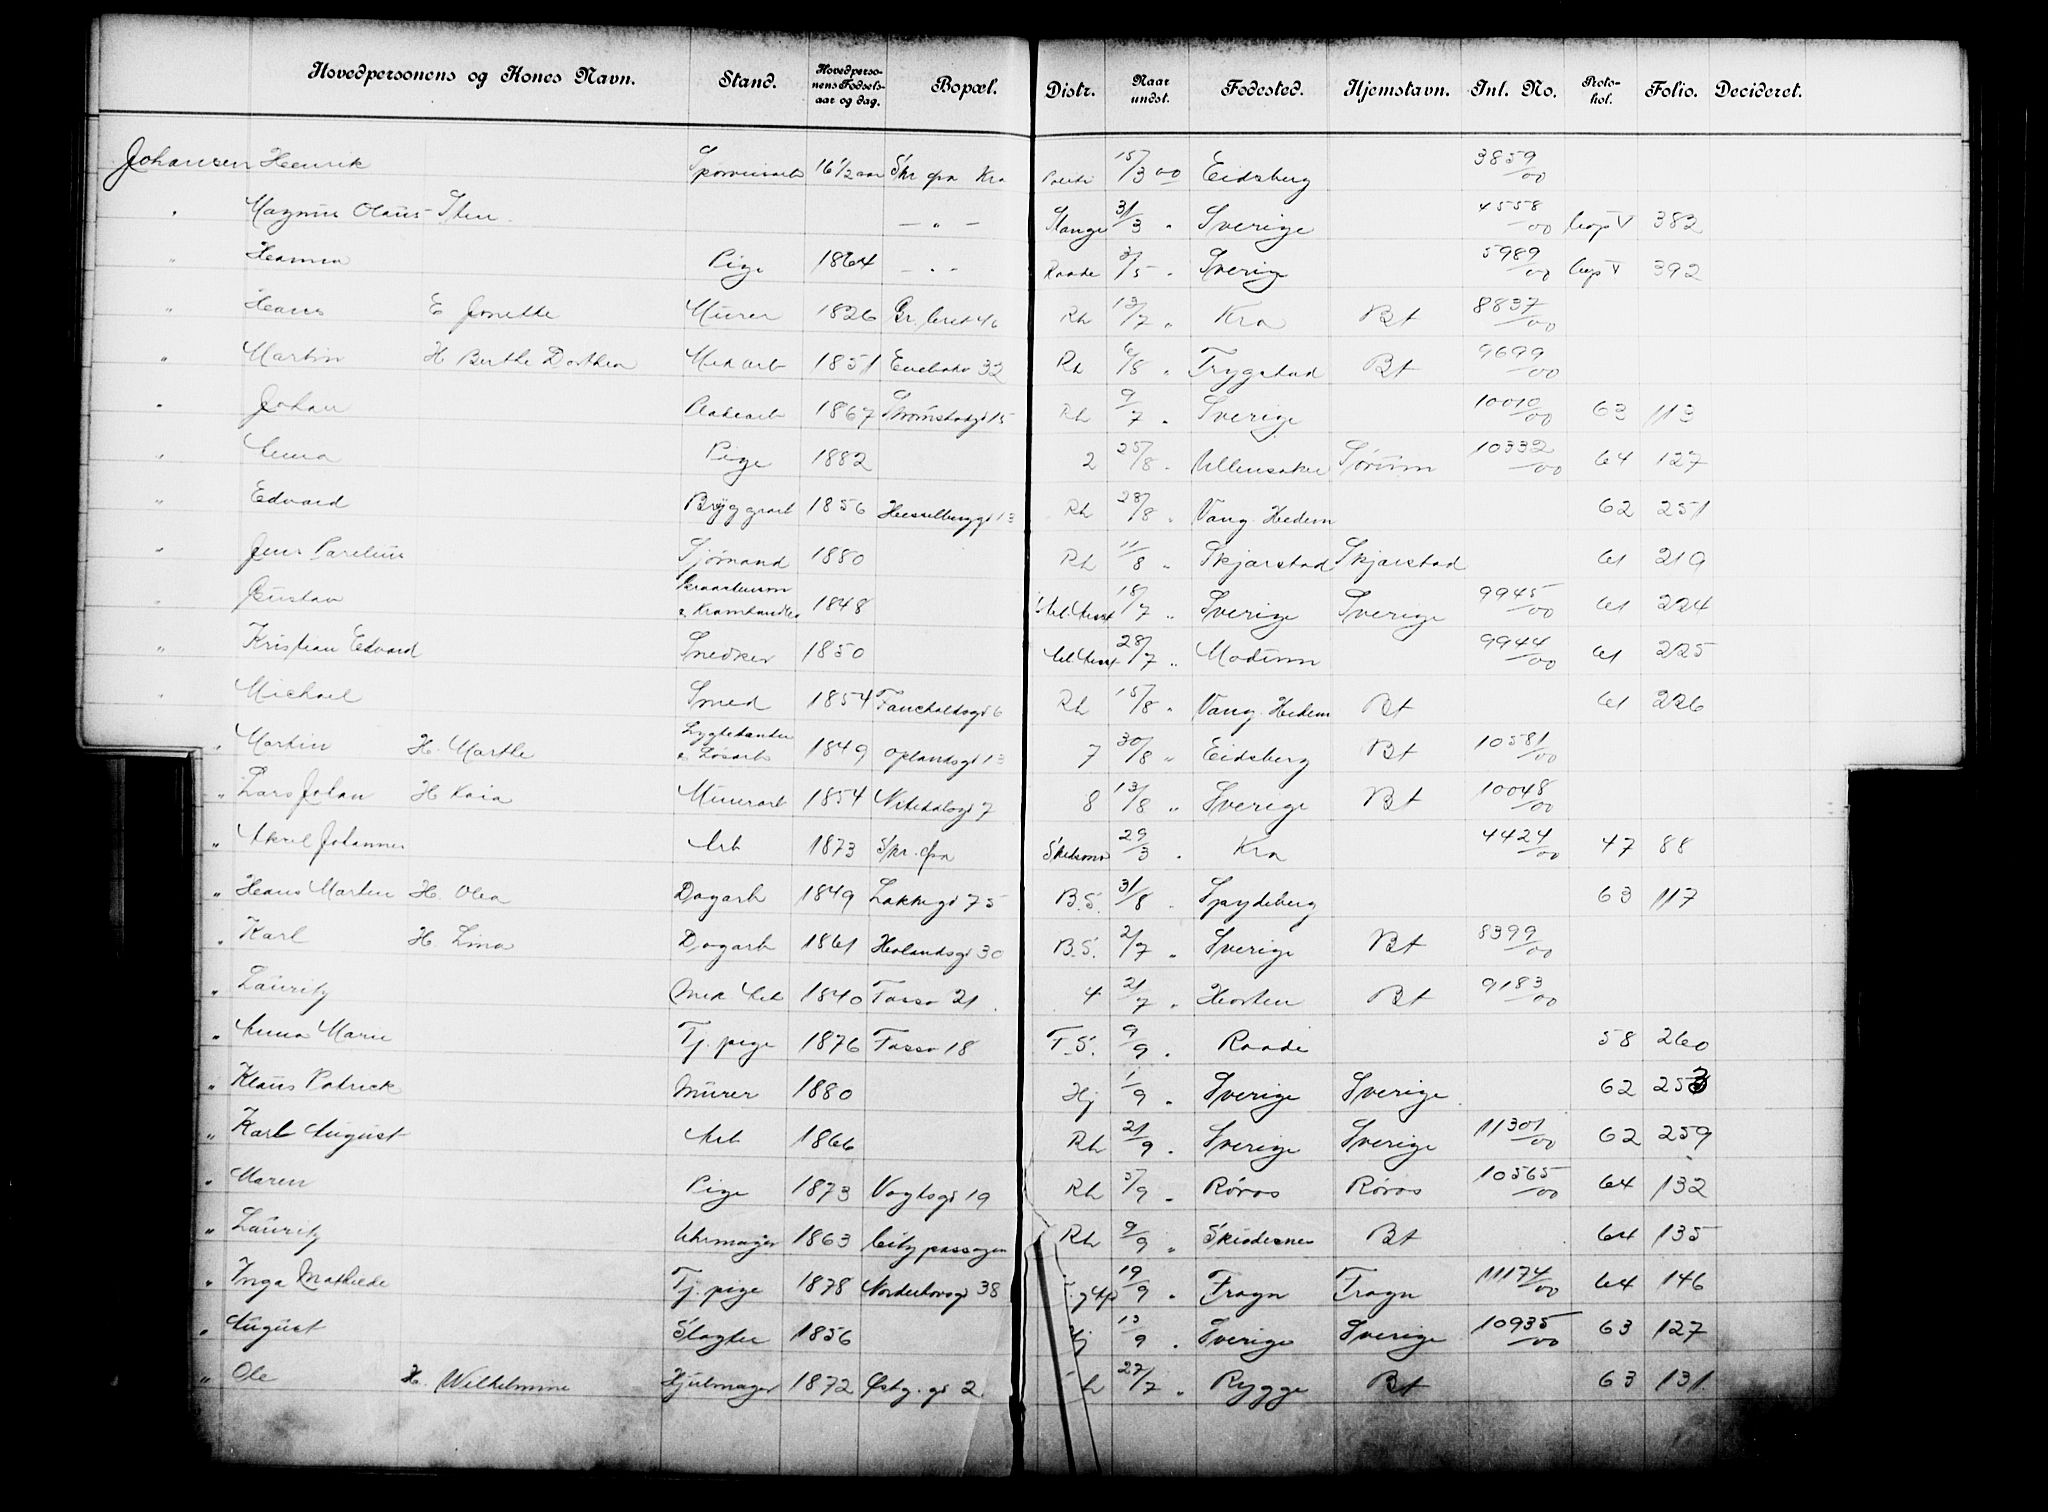 Hovedpersonens og Kones Navn. Stand. Hovedpersonens Fødselsaar og dag. Bopæl. Distr. Naar undst. Fødested. Hjemstavn. Inl. No. Protokol. Folio. Decideret.
Johansen Henrik 16 1/2 aar Skr. fra Kra 15/3 00 Eidsberg 3859/00
" Magnus Olaus Sten — " — Stange 3/3 " Sverige 4558/00 Cop V 382
" Hanna Pige 1864 — " — Raade 3/5 " Sverige 5989/00 Cop V 392
" Hans E Jonette Murer 1826 Rh 12/7 " Kra Bt 8837/00
" Martin H Berthe Dorthea Mek arb 1851 Enebakv 32 Rh 6/8 " Trygstad Bt 9699/00
" Johan 1867 Strømstadgd 15 Rh 9/7 " Sverige 10010/00 63 113
" Anna Pige 1882 2 25/8 " Ullensaker Sørum 10332/00 64 127
" Edvard Bryggearb 1856 Hesselbergg 13 Rh 28/8 " Vang Hedem 62 251
" Jens Parelius Sjømand 1880 Rh 11/8 " Skjærstad Skjærstad 61 219
" Gustav & Kramhandler 1848 18/7 " Sverige Sverige 9945/00 61 224
" Kristian Edvard Snedker 1850 28/7 " Modum 9944/00 61 225
" Michael Smed 1854 Fauchaldsgd 6 Rh 15/8 " Vang Hedem Bt 61 226
" Martin H. Marthe Lygtetænder & Løsarb 1849 Oplandsgd 13 7 30/8 " Eidsberg Bt 10581/00
" Lars Johan H Kaia Murarb 1854 Nitedalsgd 7 8 13/8 " Sverige Bt 10048/00
" Aksel Johannes Arb 1873 Skr. fra Skedsmo 29/3 " Kra 4424/00 47 88
" Hans Martin H. Olea Dagarb 1849 Lakkegd 75 B.S. 31/8 " Spydeberg 63 117
" Karl H. Lina Dagarb 1861 Hølandsgd 30 B.S. 2/7 " Sverige Bt 8399/00
" Lauritz Mek Arb 1840 Fossv 21 4 21/7 " Horten Bt 9183/00
" Anna Marie Tj. pige 1876 Fossv 18 T.S. 9/9 " Raade 58 260
" Klaus Patrick Murer 1880 Hj 1/9 " Sverige Sverige 62 253
" Karl August Arb 1866 Rh 21/9 " Sverige Sverige 11301/00 62 259
" Maren Pige 1873 Vogtsgd 19 Rh 5/9 " Røros Røros 10565/00 64 132
" Lauritz Uhrmager 1863 City passagen Rh 9/9 " Skudesnes Bt 64 135
" Inga Mathilde Tj. pige 1878 Norderhovsgd 38 19/9 " Frogn Frogn 11174/00 64 146
" August Slagter 1856 Hj 13/9 " Sverige Sverige 10935/00 63 127
" Ole H. Wilhelmine Hjulmager 1872 Østg. gd 2 27/7 " Rygge Bt 63 131